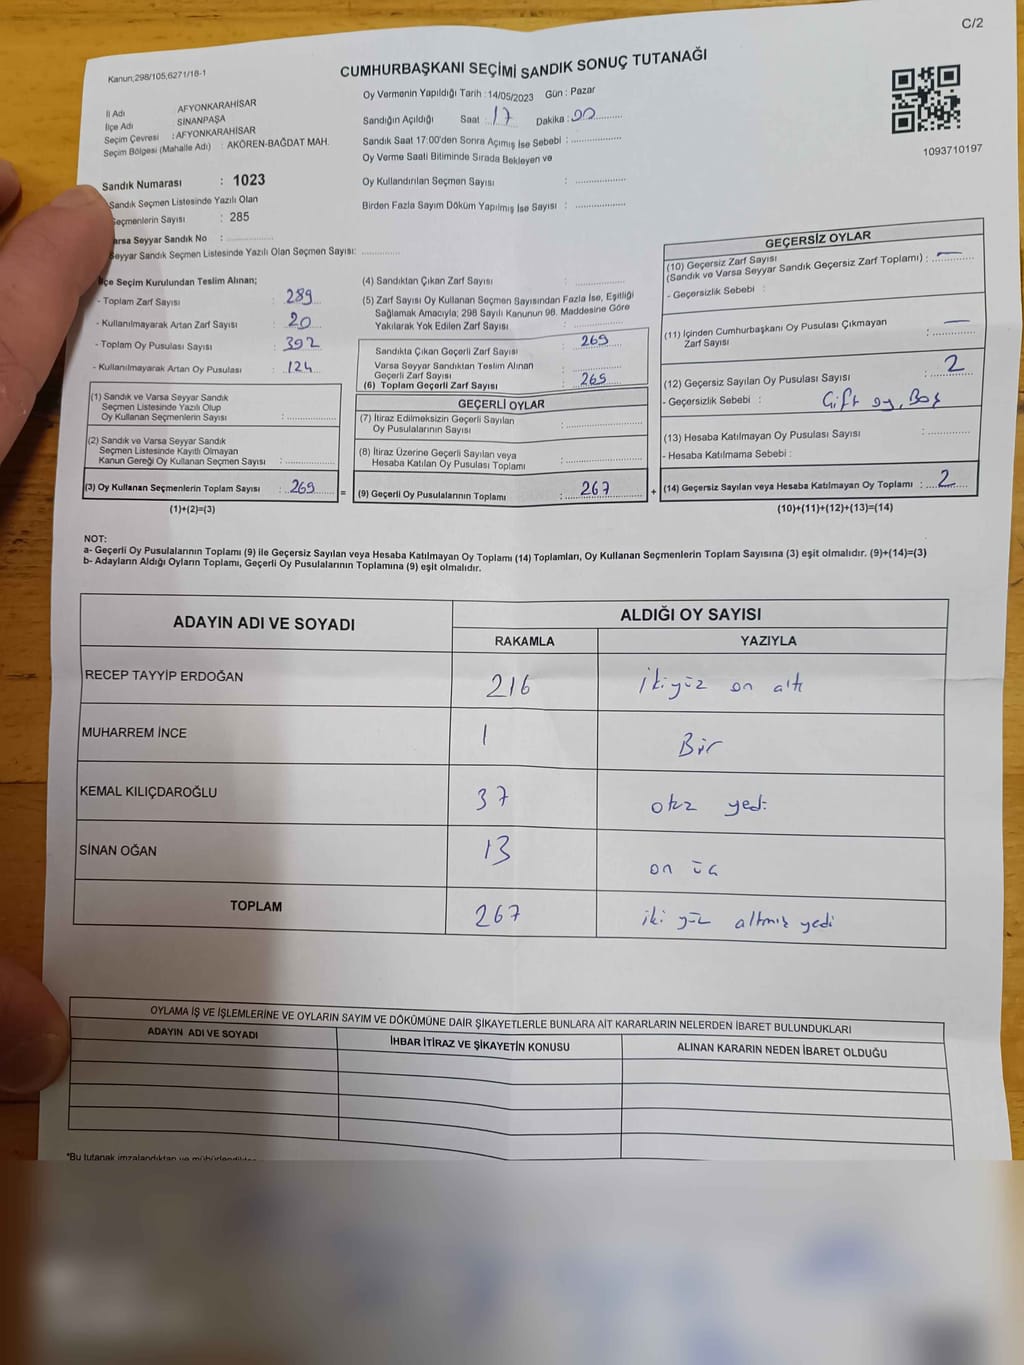 C/2
Kanun;298/105,6271/18-1
CUMHURBAŞKANI SEÇİMİ SANDIK SONUÇ TUTANAĞI
İl Adı AFYONKARAHİSAR
İlçe Adı : SİNANPAŞA
Seçim Çevresi : AFYONKARAHİSAR
Seçim Bölgesi (Mahalle Adı) : AKÖREN-BAĞDAT MAH.
Oy Vermenin Yapıldığı Tarih : 14/05/2023 Gün : Pazar
Sandığın Açıldığı Saat : 17 Dakika : 00
Sandık Saat 17:00'den Sonra Açımış İse Sebebi :
Oy Verme Saati Bitiminde Sırada Bekleyen ve
Oy Kullandırılan Seçmen Sayısı :
Birden Fazla Sayım Döküm Yapılmış İse Sayısı :
1093710197
Sandık Numarası : 1023
Sandık Seçmen Listesinde Yazılı Olan
Seçmenlerin Sayısı : 285
Varsa Seyyar Sandık No :
Seyyar Sandık Seçmen Listesinde Yazılı Olan Seçmen Sayısı:
İlçe Seçim Kurulundan Teslim Alınan;
- Toplam Zarf Sayısı : 289
- Kullanılmayarak Artan Zarf Sayısı : 20
- Toplam Oy Pusulası Sayısı : 392
- Kullanılmayarak Artan Oy Pusulası : 124
(1) Sandık ve Varsa Seyyar Sandık
Seçmen Listesinde Yazılı Olup
Oy Kullanan Seçmenlerin Sayısı :
(2) Sandık ve Varsa Seyyar Sandık
Seçmen Listesinde Kayıtlı Olmayan
Kanun Gereği Oy Kullanan Seçmen Sayısı :
(3) Oy Kullanan Seçmenlerin Toplam Sayısı : 269 =
(1)+(2)=(3)
(4) Sandıktan Çıkan Zarf Sayısı :
(5) Zarf Sayısı Oy Kullanan Seçmen Sayısından Fazla İse, Eşitliği
Sağlamak Amacıyla; 298 Sayılı Kanunun 98. Maddesine Göre
Yakılarak Yok Edilen Zarf Sayısı :
Sandıkta Çıkan Geçerli Zarf Sayısı : 269
Varsa Seyyar Sandıktan Teslim Alınan
Geçerli Zarf Sayısı :
(6) Toplam Geçerli Zarf Sayısı : 265
GEÇERLİ OYLAR
(7) İtiraz Edilmeksizin Geçerli Sayılan
Oy Pusulalarının Sayısı :
(8) İtiraz Üzerine Geçerli Sayılan veya
Hesaba Katılan Oy Pusulası Toplamı :
(9) Geçerli Oy Pusulalarının Toplamı : 267 +
GEÇERSİZ OYLAR
(10) Geçersiz Zarf Sayısı
(Sandık ve Varsa Seyyar Sandık Geçersiz Zarf Toplamı) : —
- Geçersizlik Sebebi :
(11) İçinden Cumhurbaşkanı Oy Pusulası Çıkmayan
Zarf Sayısı : —
(12) Geçersiz Sayılan Oy Pusulası Sayısı : 2
- Geçersizlik Sebebi : Çift oy, Boş
(13) Hesaba Katılmayan Oy Pusulası Sayısı :
- Hesaba Katılmama Sebebi :
(14) Geçersiz Sayılan veya Hesaba Katılmayan Oy Toplamı : 2
(10)+(11)+(12)+(13)=(14)
NOT:
a- Geçerli Oy Pusulalarının Toplamı (9) ile Geçersiz Sayılan veya Hesaba Katılmayan Oy Toplamı (14) Toplamları, Oy Kullanan Seçmenlerin Toplam Sayısına (3) eşit olmalıdır. (9)+(14)=(3)
b- Adayların Aldığı Oyların Toplamı, Geçerli Oy Pusulalarının Toplamına (9) eşit olmalıdır.
ADAYIN ADI VE SOYADI ALDIĞI OY SAYISI
RAKAMLA YAZIYLA
RECEP TAYYİP ERDOĞAN 216 ikiyüz on altı
MUHARREM İNCE 1 Bir
KEMAL KILIÇDAROĞLU 37 otuz yedi
SİNAN OĞAN 13 on üç
TOPLAM 267 iki yüz altmış yedi
OYLAMA İŞ VE İŞLEMLERİNE VE OYLARIN SAYIM VE DÖKÜMÜNE DAİR ŞİKAYETLERLE BUNLARA AİT KARARLARIN NELERDEN İBARET BULUNDUKLARI
ADAYIN ADI VE SOYADI İHBAR İTİRAZ VE ŞİKAYETİN KONUSU ALINAN KARARIN NEDEN İBARET OLDUĞU
*Bu tutanak imzalandıktan ve mühürlendikten